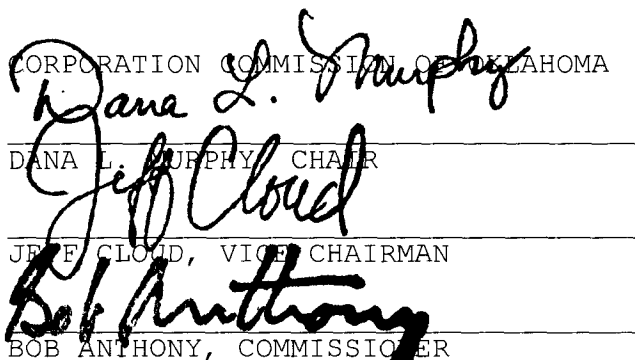 CORPORATION COMMISSION OF OKLAHOMA
Dana L. Murphy
DANA L. MURPHY, CHAIR
Jeff Cloud
JEFF CLOUD, VICE CHAIRMAN
Bob Anthony
BOB ANTHONY, COMMISSIONER